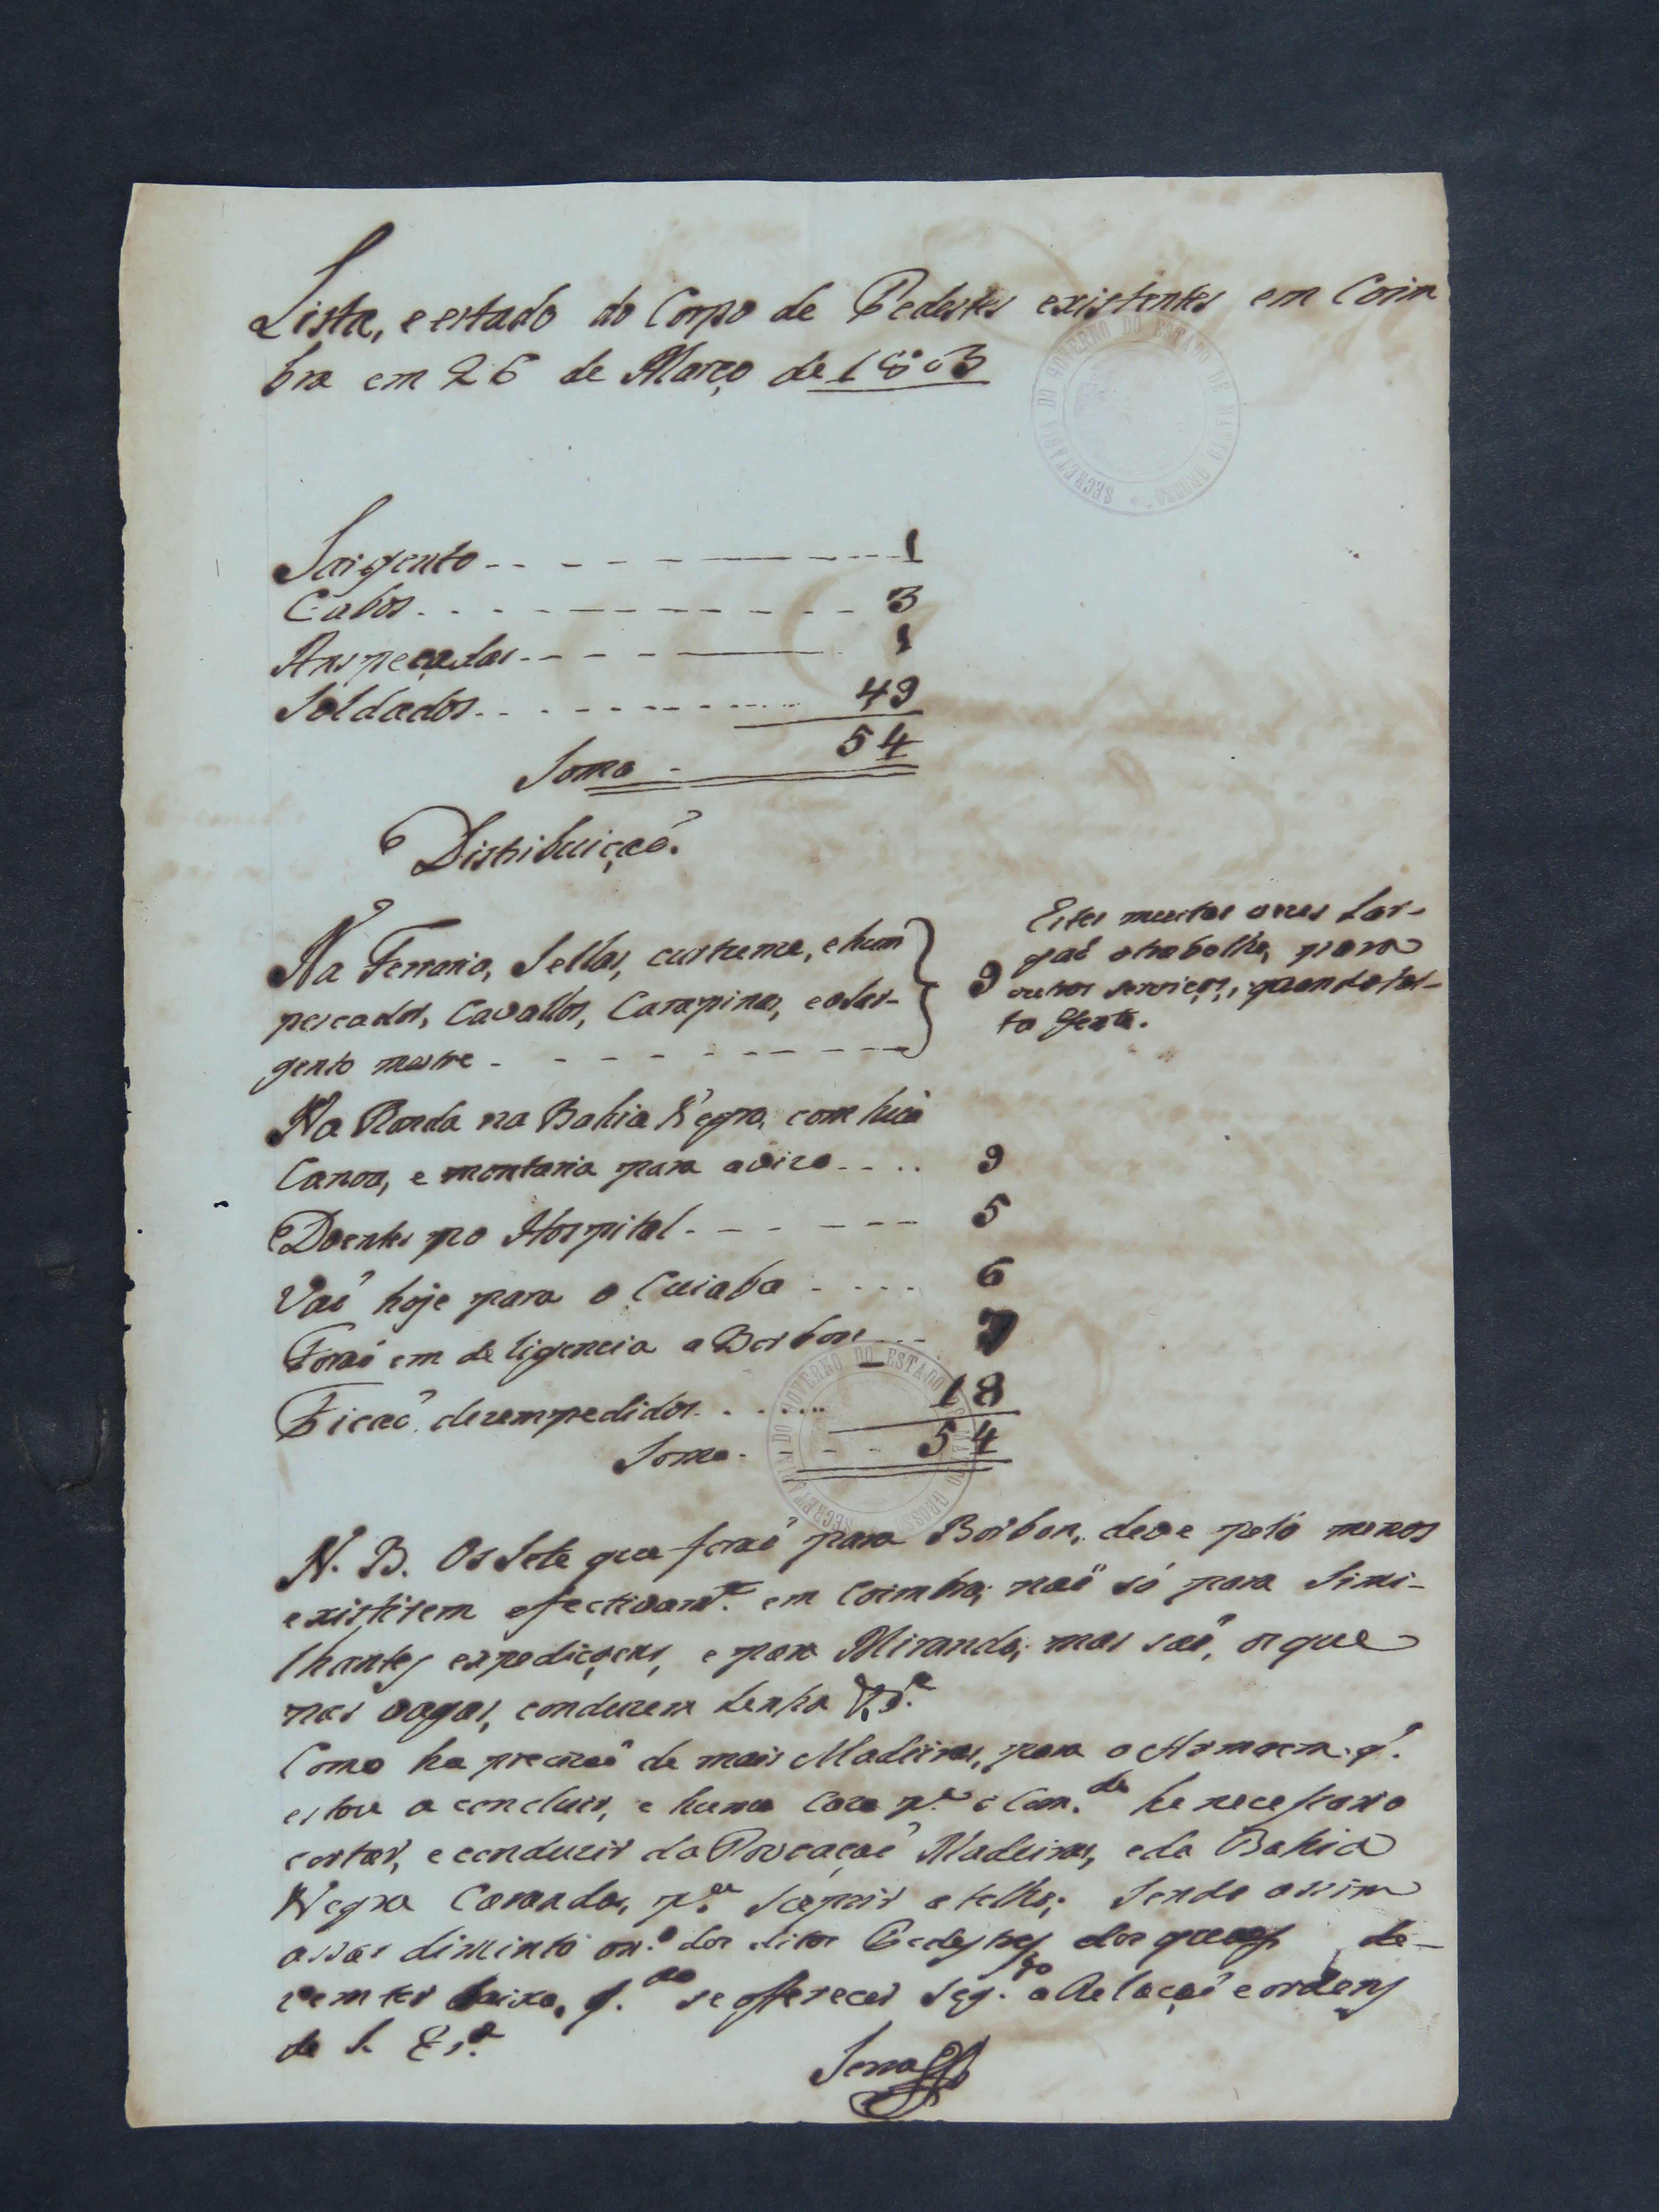 Lista, e estado do Corpo de Pedestes existentes em Coim
bra em 26 de Março de 1803
SECRETARIA DO GOVERNO DO ESTADO DE MATTO GROSSO
Sargento 1
Cabos 3
Anspeçadas 1
Soldados 49
Soma 54
Distribuiçaõ.
Na Ferraria, Sellas, curtume, e hum
pescador, Cavallos, Carapinas, e o Sar-
gento mestre
9
Estes muitas vezes lar-
gaõ o trabalho, para
outros serviços, quando fal-
ta Gente.
Na Ronda na Bahia Negra, com huã
Canoa, e montaria para avizo 9
Doentes no Hospital 5
Vaõ hoje para o Cuiaba 6
Foraõ em deligencia a Borbon 7
Ficaõ dezempedidos 18
Soma 54
SECRETARIA DO GOVERNO DO ESTADO DE MATTO GROSSO
N. B. Os Sete que foraõ para Borbon, deve pelo menos
existirem efectivamt.e em Coimbra; naõ só para Simi-
lhantes expediçoens, e para Miranda; mas saõ, os que
nas vagas, conduzem Lenha
Como ha precizaõ de mais Madeiras, para o Armazem q.
estou a concluir, e huma Caza p.a o Com.de he necessario
cortar, e conduzir da Madeiras, e da Bahia
Negra Carandas, p.a a telha; Sendo assim
assas diminto o n.o dos ditos Pedestres dos quaes de-
vem ter baixa, q.do se offerecer seg.do a Relaçaõ e ordens
de S. Ex.a
Serra